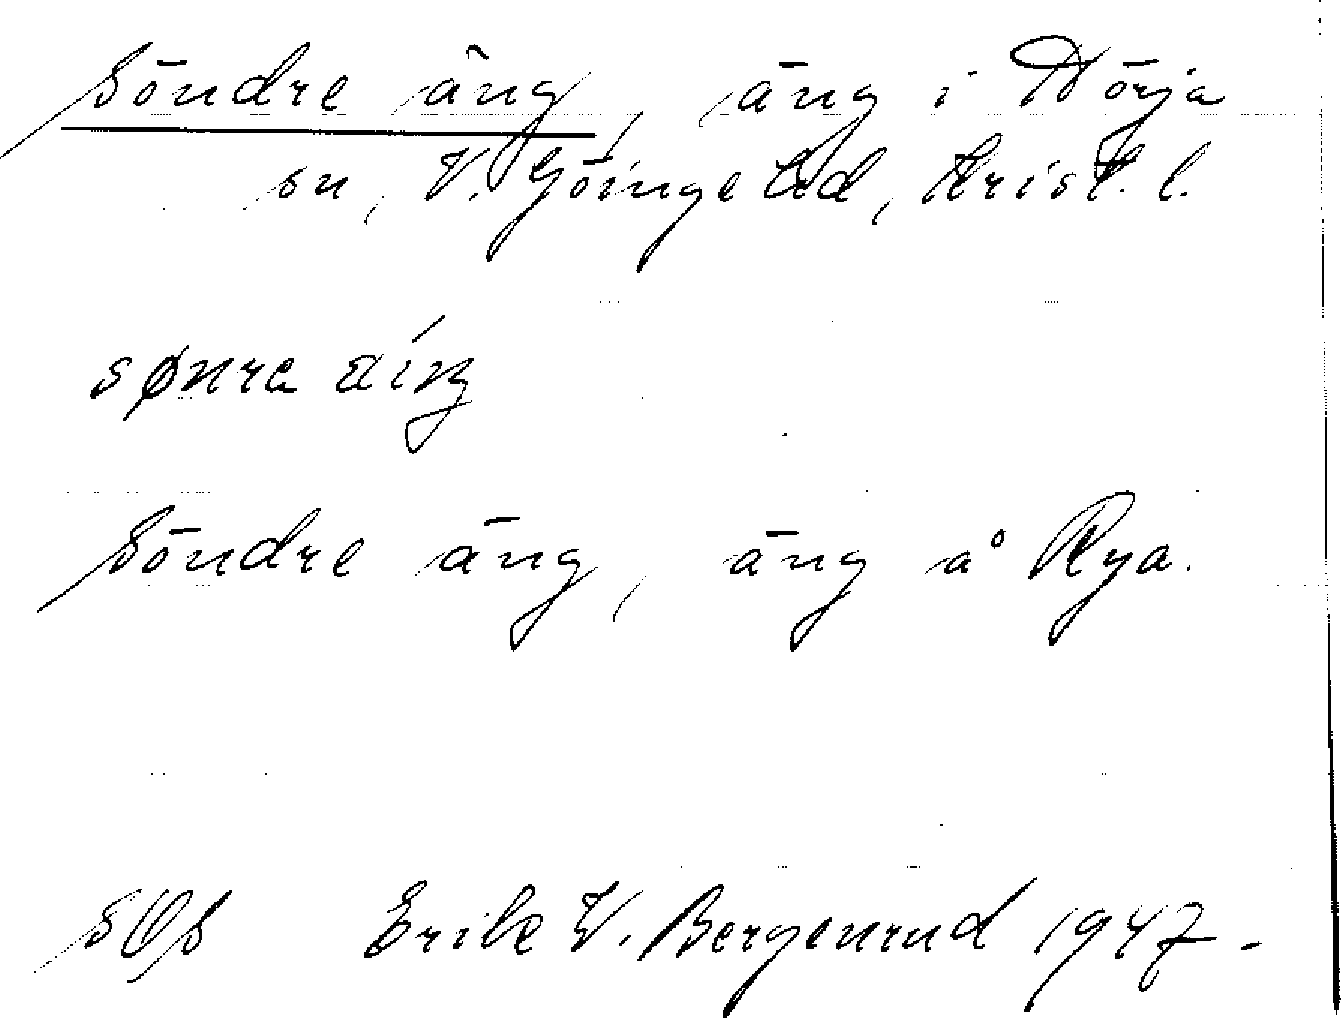 Söndre äng, äng i Nörja
sn, V. Göinge hd, Krist. l.
sønra äiŋ
Söndre äng, äng å Rya.
SOS Erik W. Bergenrud 1947.-